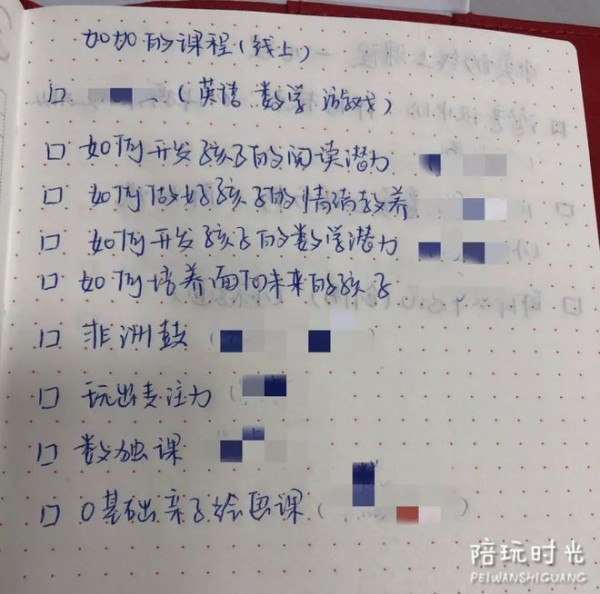 加加的课程(线上)
□ (英语 数学 游戏)
□ 如何开发孩子的阅读潜力
□ 如何做好孩子的情绪教养
□ 如何开发孩子的数学潜力
□ 如何培养面向未来的孩子
□ 非洲鼓(
□ 玩出专注力(
□ 数独课
□ 0基础亲子绘画课(
陪玩时光
PEIWANSHIGUANG